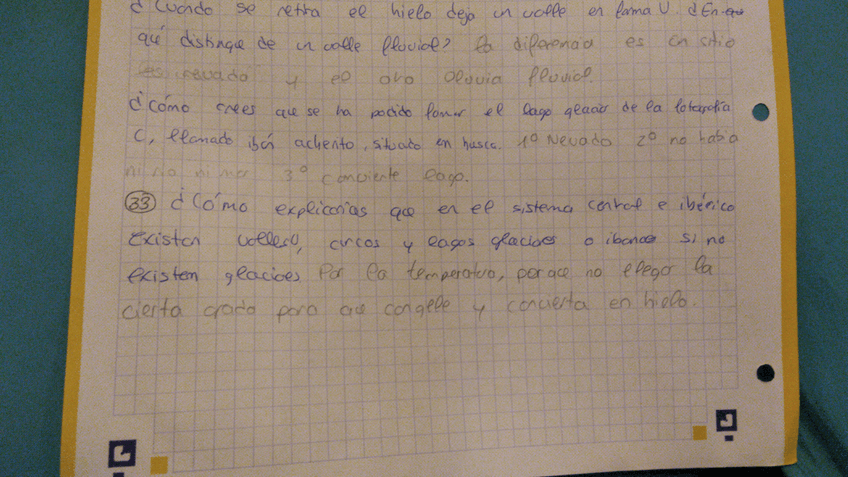 ¿Cuando se retira el hielo deja un valle en forma U. ¿En
qué distingue de un valle fluvial? la diferencia es en sitio
es nevado y el otro lluvia fluvial.
¿Cómo crees que se ha podido formar el lago glaciar de la fotografía
C, llamado ibón acherito, situado en huesca. 1º Nevada 2º no habia
ni rio ni mar 3º conviente lago.
33 ¿Cómo explicarias que en el sistema central e ibérico
existen valles U, circos y lagos glaciares o ibones si no
existen glaciares Por la temperatura, porque no llegar la
cierta grado para que congele y convierta en hielo.